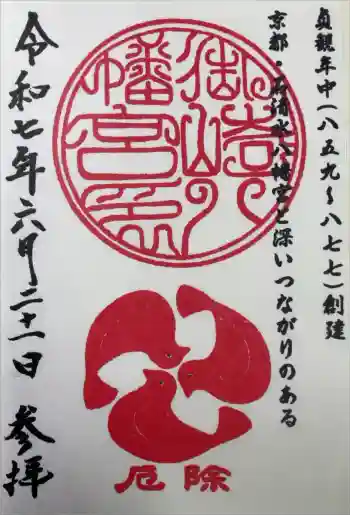 貞観年中(八五九〜八七七)創建
京都・石清水八幡宮と深いつながりのある
令和七年六月二十一日 参拝
厄除